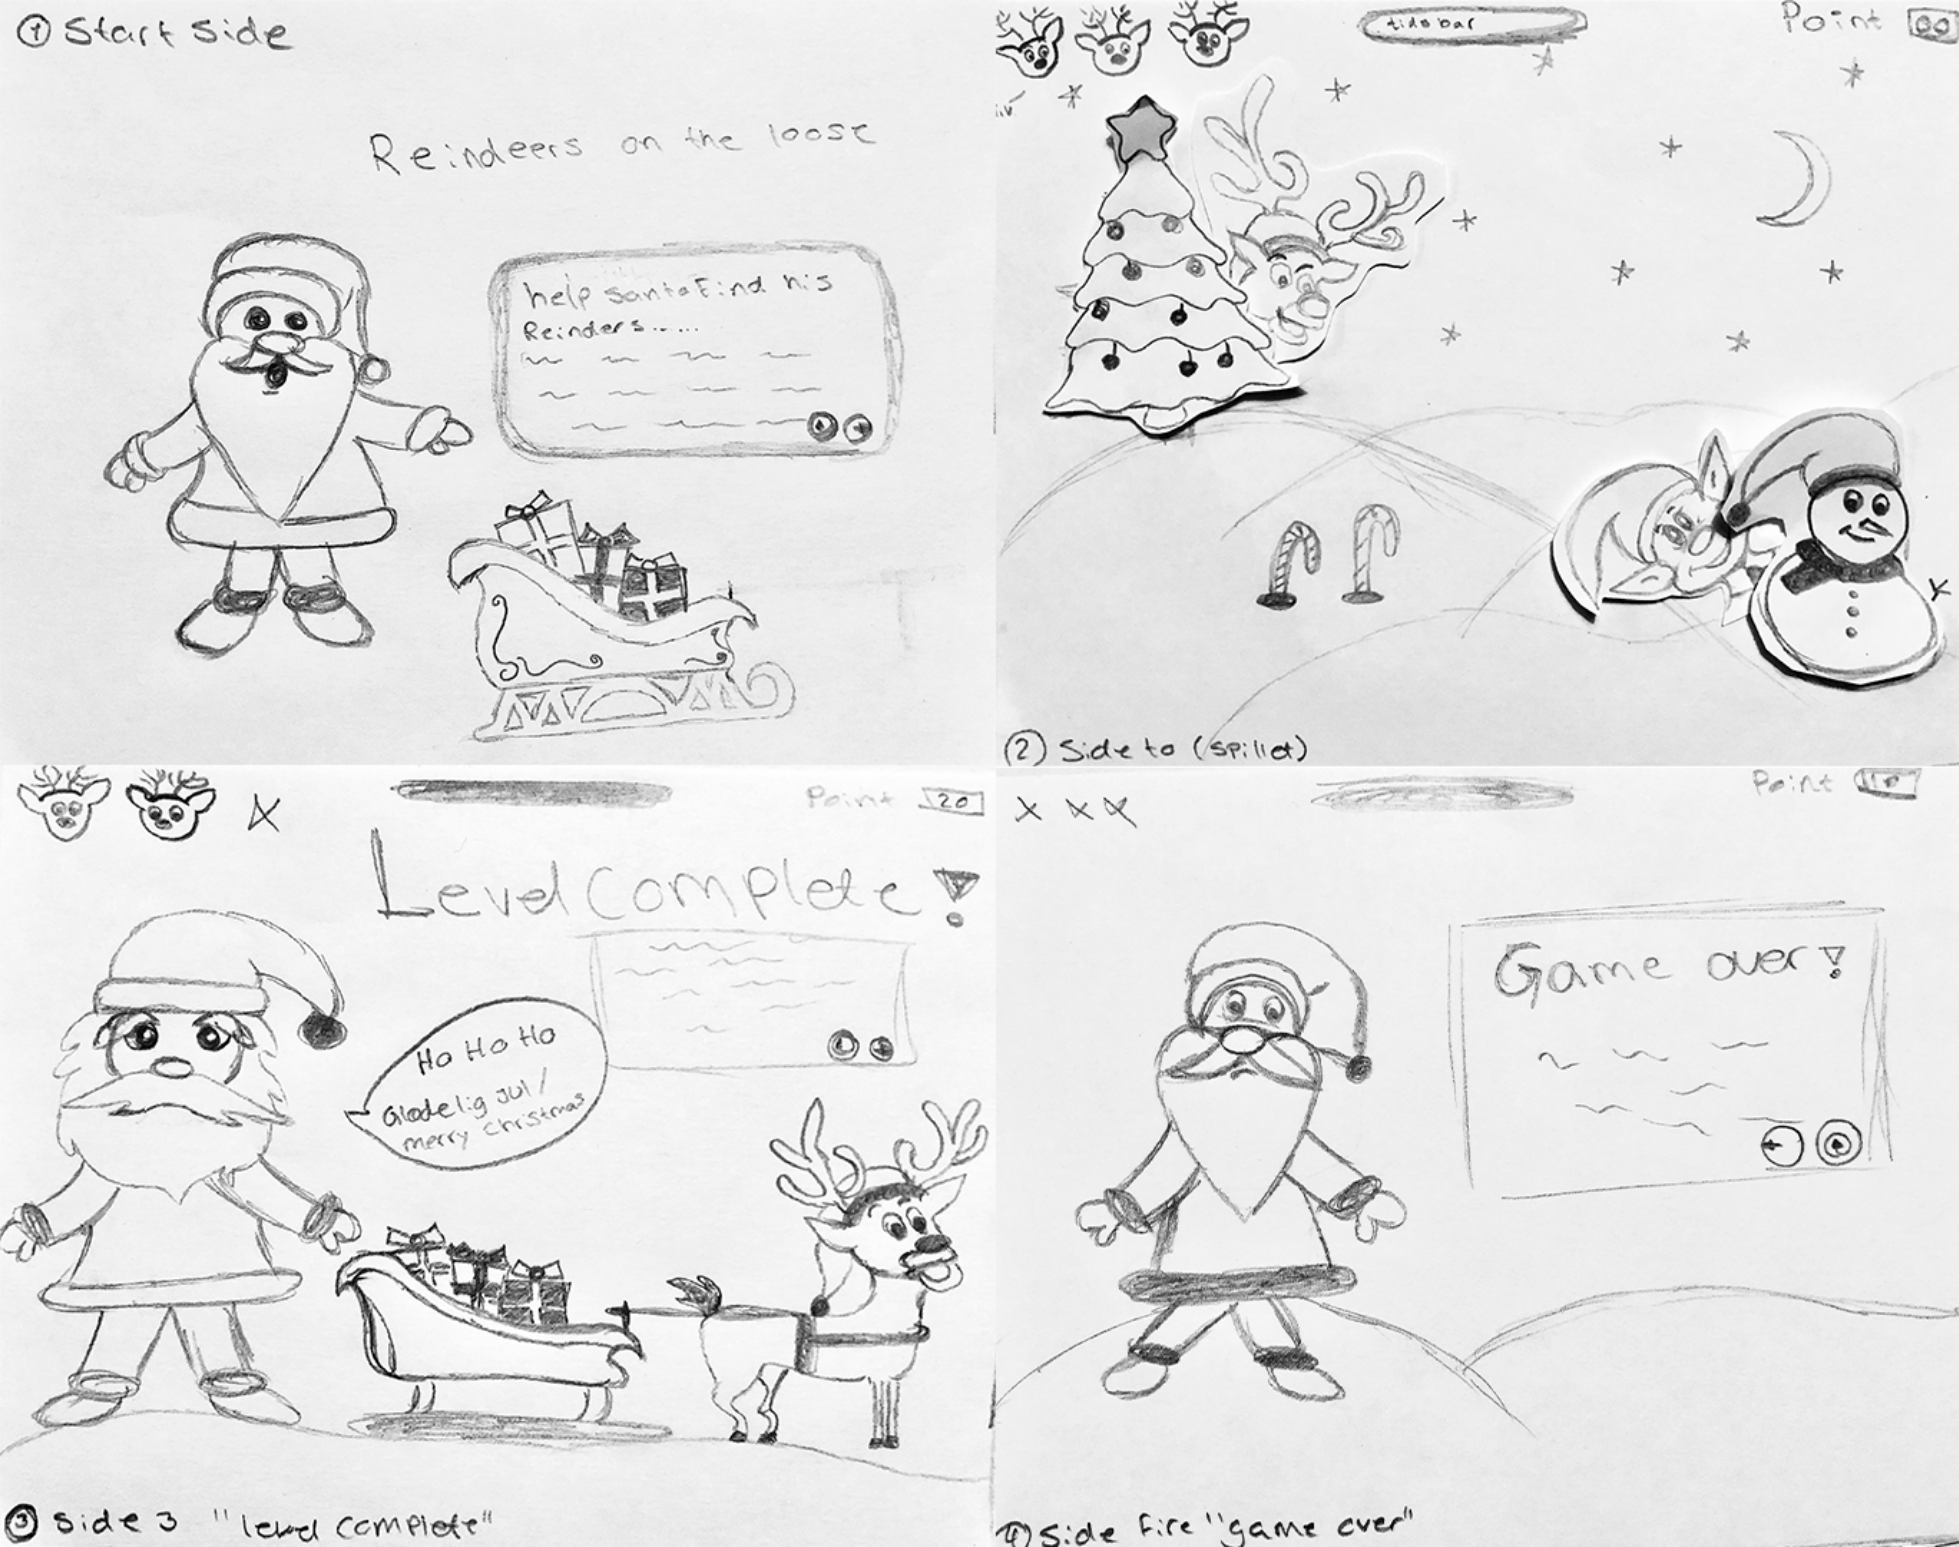 1 Start Side
Reindeers on the loose
help santa Find his
Reinders......
tidsbar
Point 00
2 Side to (spillet)
Point 20
Level Complete!
Ho Ho Ho
Gladelig jul /
merry christmas
3 Side 3 "level complete"
Point
Game over!
4 Side Fire "game over"